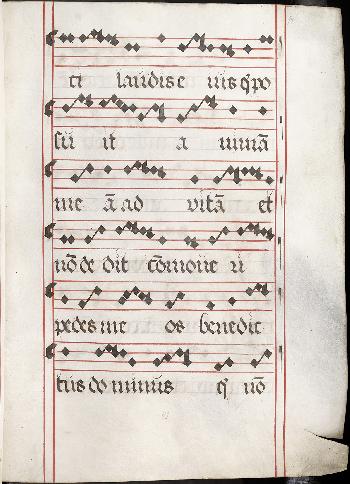 ti laudis e iuis q̃ po
suit a nimã
me ã ad vitã et
nõ de dit cõmoue ri
pedes me os benedic
tus do minus q̃ nõ